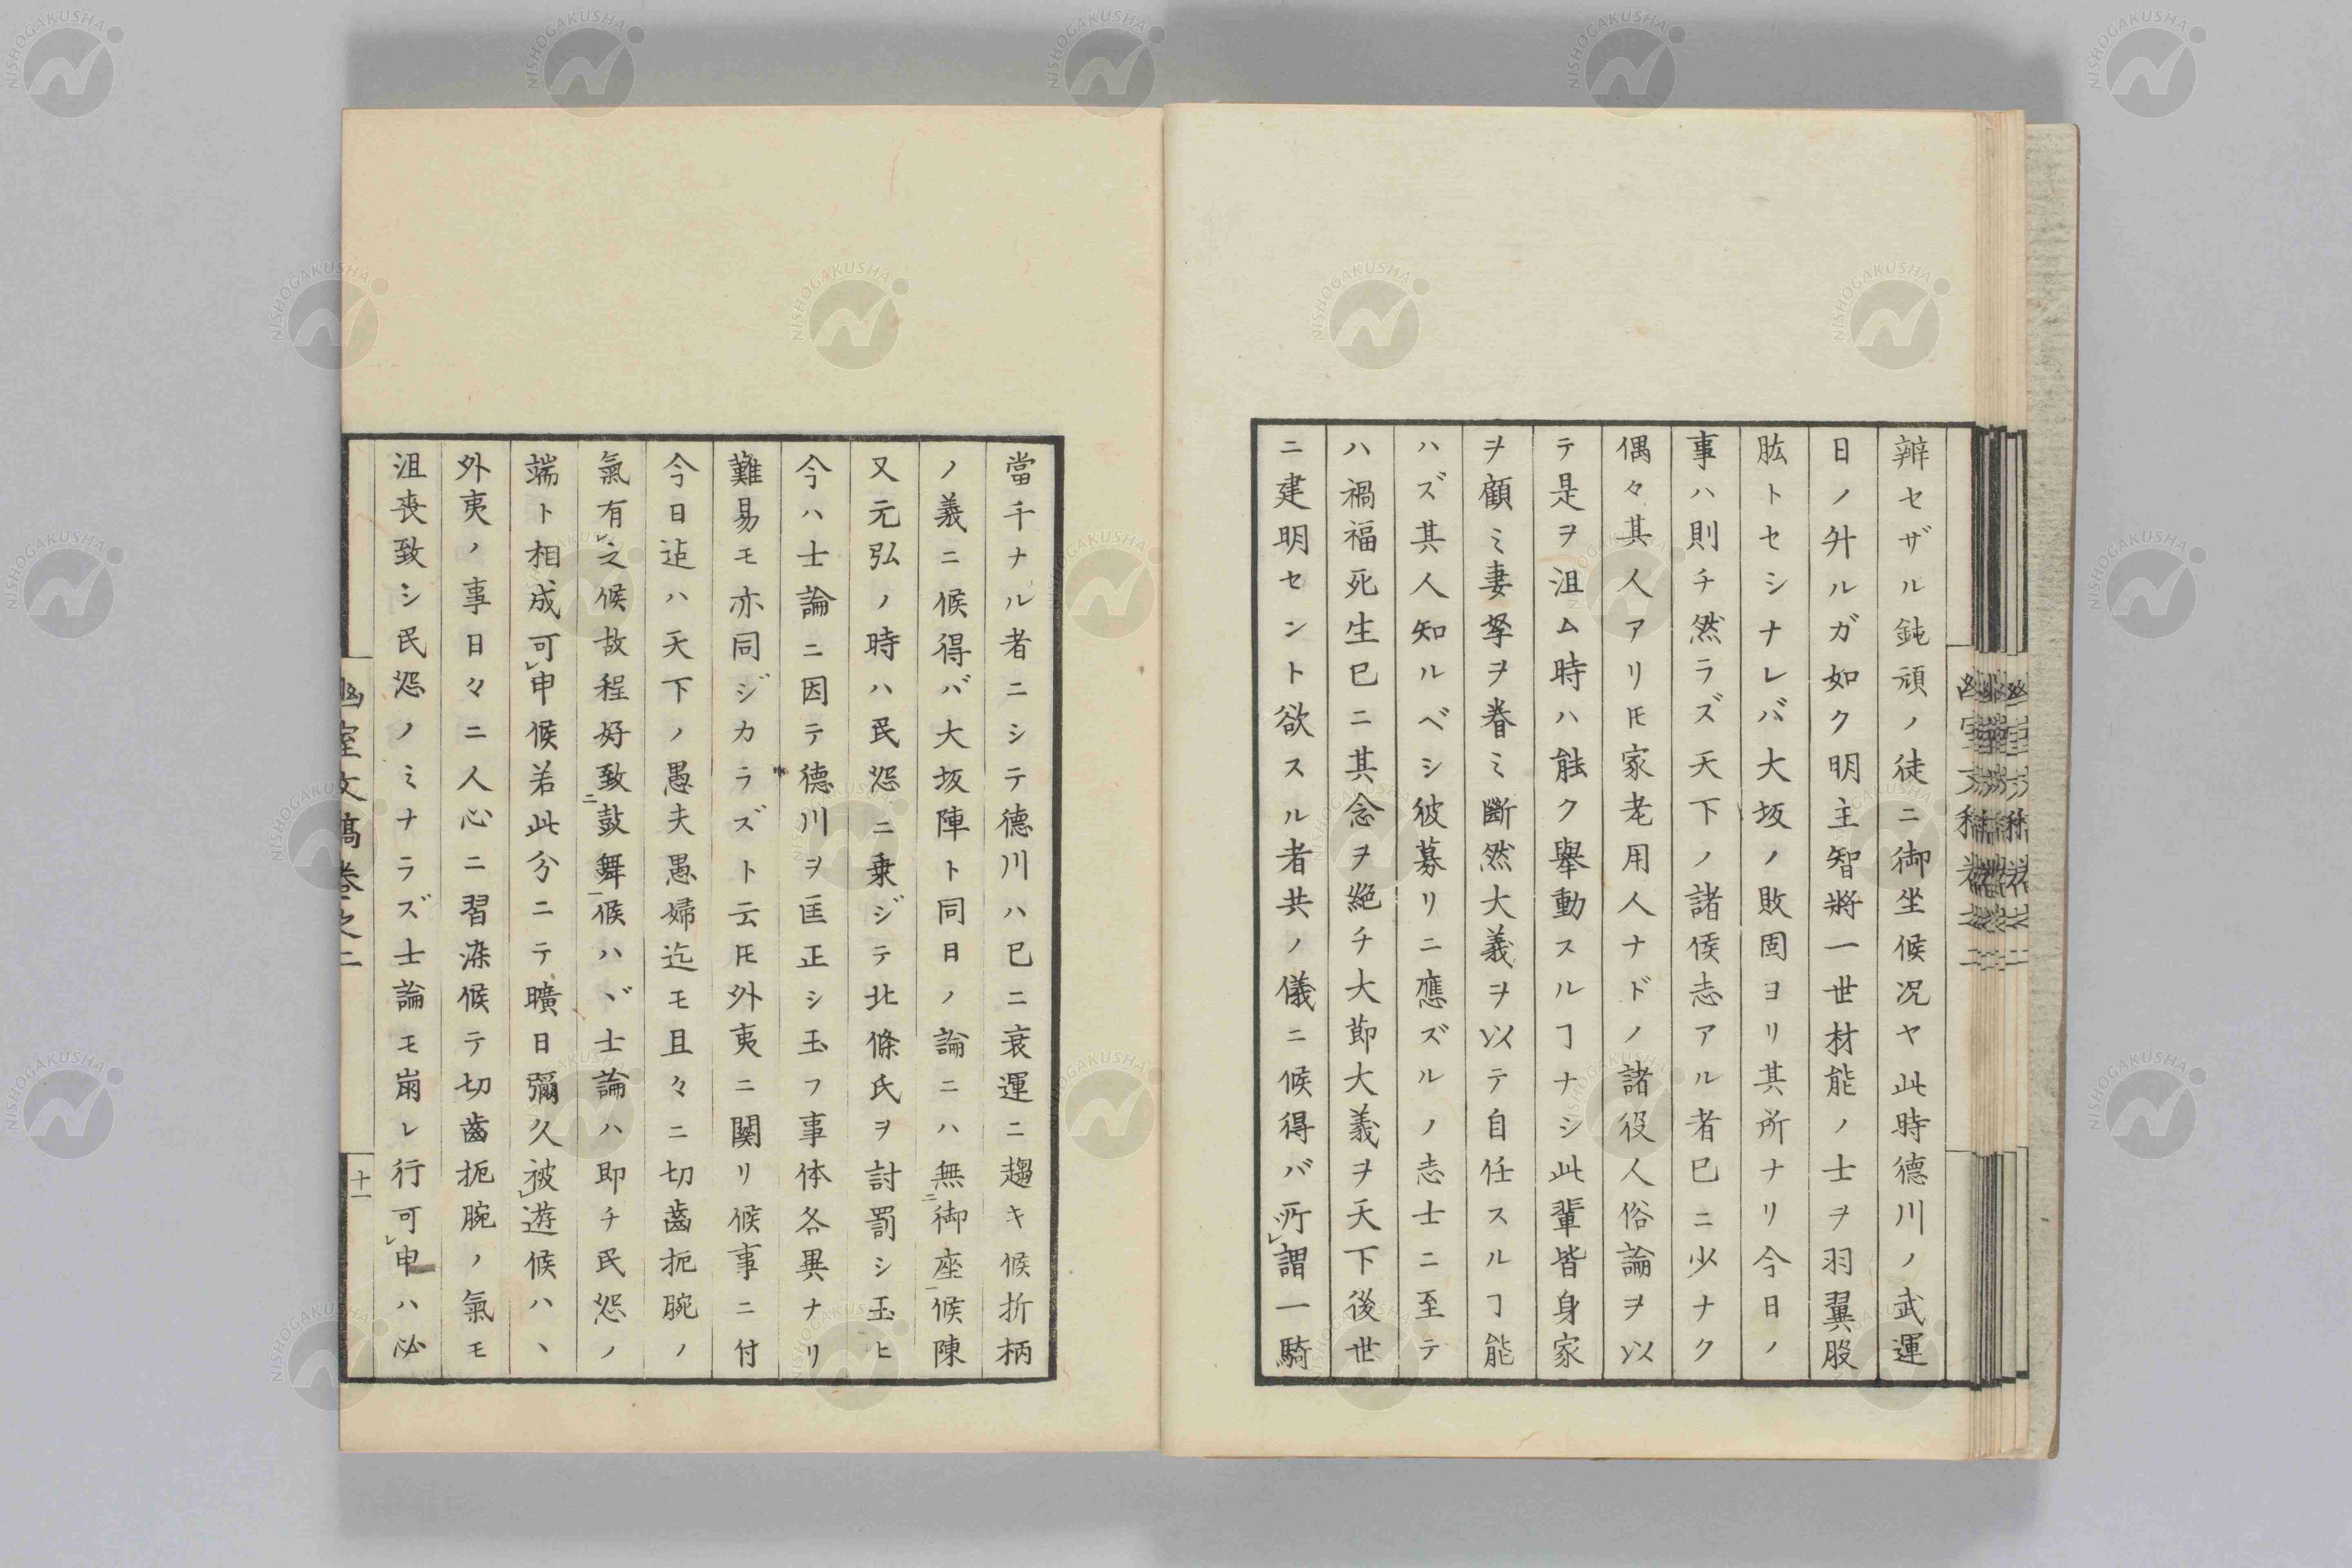 辨セザル鈍頑ノ徒ニ御坐候况ヤ此時德川ノ武運
日ノ升ルガ如ク明主智將一世材能ノ士ヲ羽翼股
肱トセシナレバ大坂ノ敗固ヨリ其所ナリ今日ノ
事ハ則チ然ラズ天下ノ諸侯志アル者已ニ少ナク
偶々其人アリ𪜈家老用人ナドノ諸役人俗論ヲ以
テ是ヲ沮ム時ハ能ク舉動スルヿナシ此輩皆身家
ヲ顧ミ妻孥ヲ眷ミ斷然大義ヲ以テ自任スルヿ能
ハズ其人知ルベシ彼募リニ應ズルノ志士ニ至テ
ハ禍福死生已ニ其念ヲ絕チ大節大義ヲ天下後世
ニ建明セント欲スル者共ノ儀ニ候得バ所レ謂一騎
當千ナル者ニシテ德川ハ已ニ衰運ニ趨キ候折柄
ノ義ニ候得バ大坂陣ト同日ノ論ニハ無二御座一候陳
又元弘ノ時ハ民怨ニ乗ジテ北條氏ヲ討罰シ玉ヒ
今ハ士論ニ因テ德川ヲ匡正シ玉フ事体各異ナリ
難易モ亦同ジカラズト云𪜈外夷ニ關リ候事ニ付
今日迚ハ天下ノ愚夫愚婦迄モ且々ニ切齒扼腕ノ
氣有レ之候故程好致二鼓舞一候ハヾ士論ハ即チ民怨ノ
端ト相成可レ申候若此分ニテ曠日彌久被レ遊候ハヽ
外夷ノ事日々ニ人心ニ習染候テ切齒扼腕ノ氣モ
沮喪致シ民怨ノミナラズ士論モ崩レ行可レ申ハ必
幽室文稿卷之二
十一